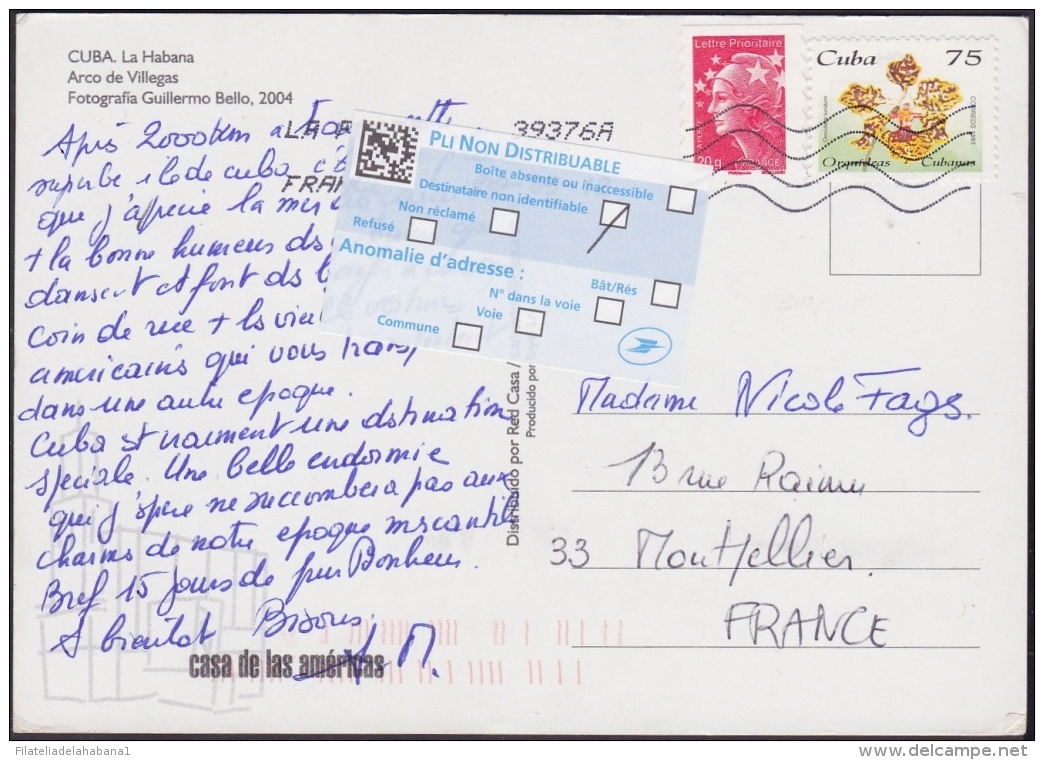 CUBA. La Habana
Arco de Villegas
Fotografía Guillermo Bello, 2004
Après 20000km a
superbe ile de cuba c'e
que j'aprecie la
+ la bonne humeur ds
dansent et font ds
coin de rue + les viei
americaines qui vous
dans une autre epoque.
Cuba st vraiment une dstination
speciale. Une belle endormie
qui j'spere ne succombera pas aux
charms de notre epoque mercantile
Bref 15 jours de pur Bonheur.
A bientot Bisous.
M.
casa de las américas
39376A
FRAN
PLI NON DISTRIBUABLE
Boîte absente ou inaccessible
Destinataire non identifiable
Non réclamé
Refusé
Anomalie d'adresse :
Bât/Rés
N° dans la voie
Voie
Commune
Distribuido por Red Casa /
Producido por
Lettre Prioritaire
20g
FRANCE
Cuba 75
CORREOS 1995
Orquideas Cubanas
Madame Nicole Fages.
13 rue
33 Montpellier.
FRANCE
Filateliadelahabana1
delcampe.net